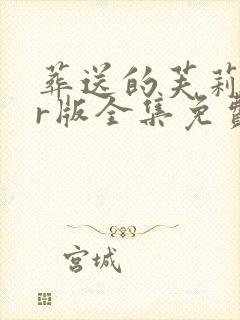 葬送的芙莉
r版全集免费
宫城